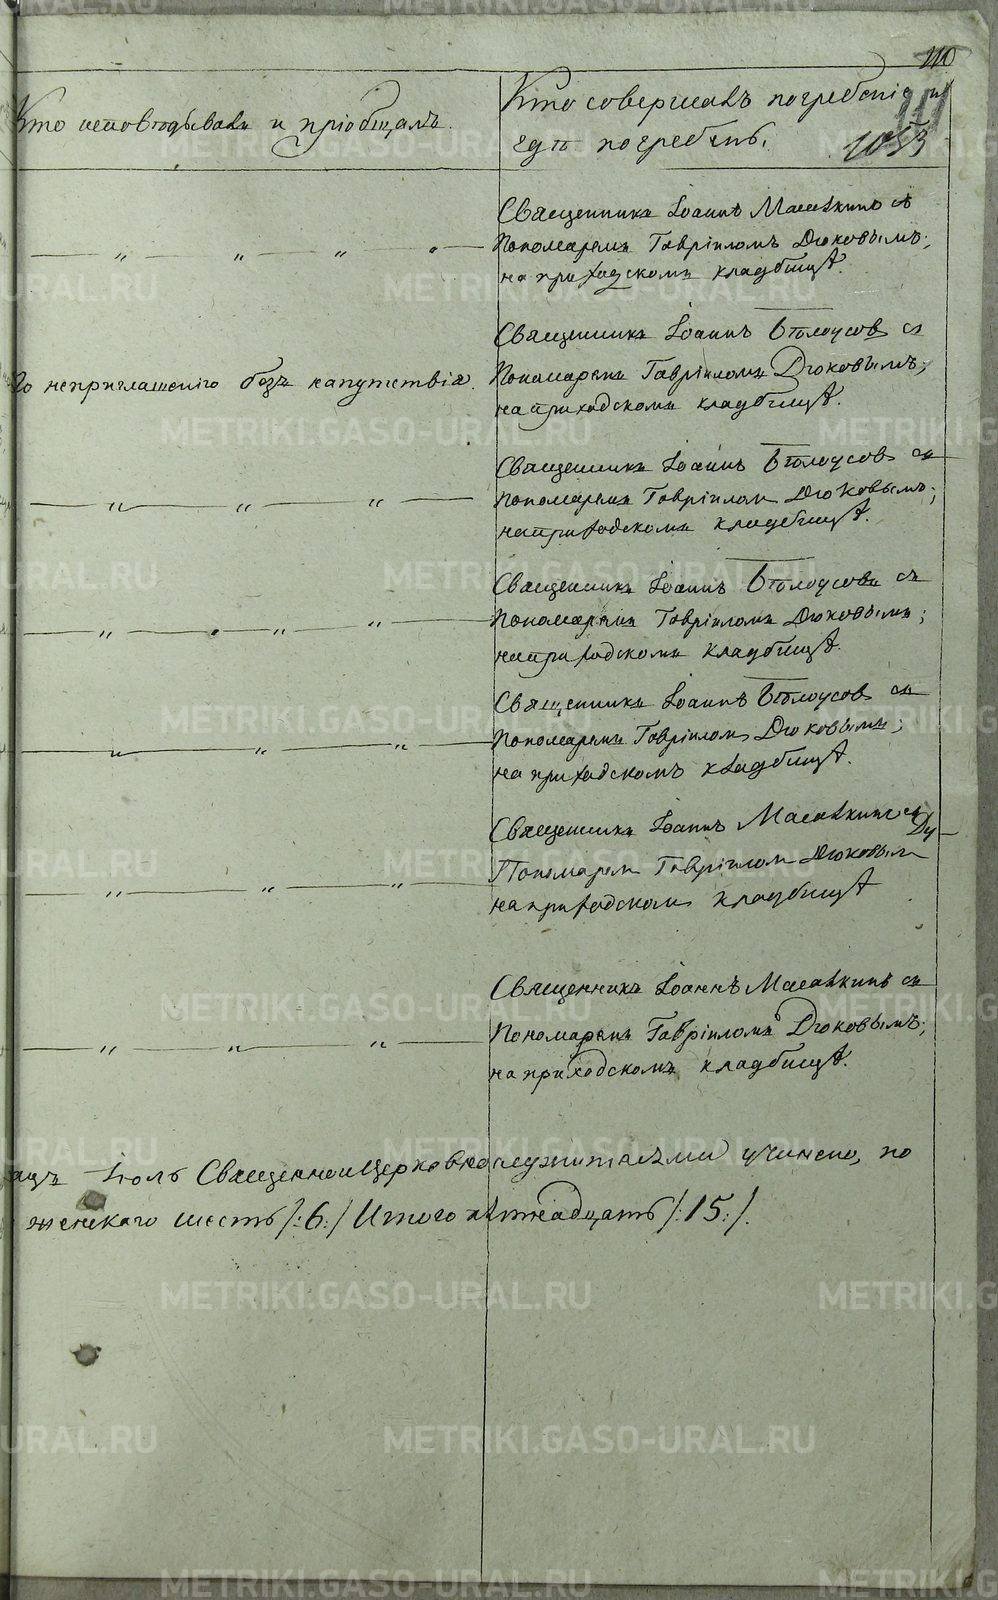 110
111
1053
Кто исповѣдывалъ и пріобщалъ.
Кто совершалъ погребеніе и
гдѣ погребенъ.
Священникъ Іоаннъ съ
Пономаремъ Гавріиломъ Дюковымъ;
на приходскомъ кладбищѣ.
По неприглашенію безъ напутствія.
Священникъ Іоаннъ Бѣлоусов съ
Пономаремъ Гавріиломъ Дюковымъ;
на приходскомъ кладбищѣ.
Священникъ Іоаннъ Бѣлоусов съ
Пономаремъ Гавріилом Дюковымъ;
на приходскомъ кладбищѣ.
Священникъ Іоаннъ Бѣлоусовъ съ
Пономаремъ Гавріиломъ Дюковымъ;
на приходскомъ кладбищѣ.
Священникъ Іоаннъ Бѣлоусов съ
Пономаремъ Гавріилом Дюковымъ;
на приходскомъ кладбищѣ.
Священникъ Іоаннъ съ
Пономарем Гавріилом Дюковым
на приходском кладбищѣ
Священникъ Іоаннъ съ
Пономаремъ Гавріиломъ Дюковымъ;
на приходскомъ кладбищѣ.
Іюль Священноицерковнослужителями учинено, по
женскаго шесть /:6:/ Итого пятнадцать /:15:/.
METRIKI.GASO-URAL.RU